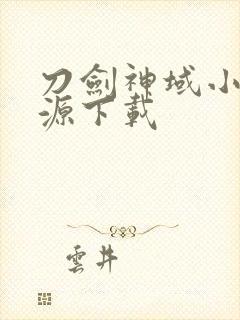 刀劍神域小
源下載
雲井